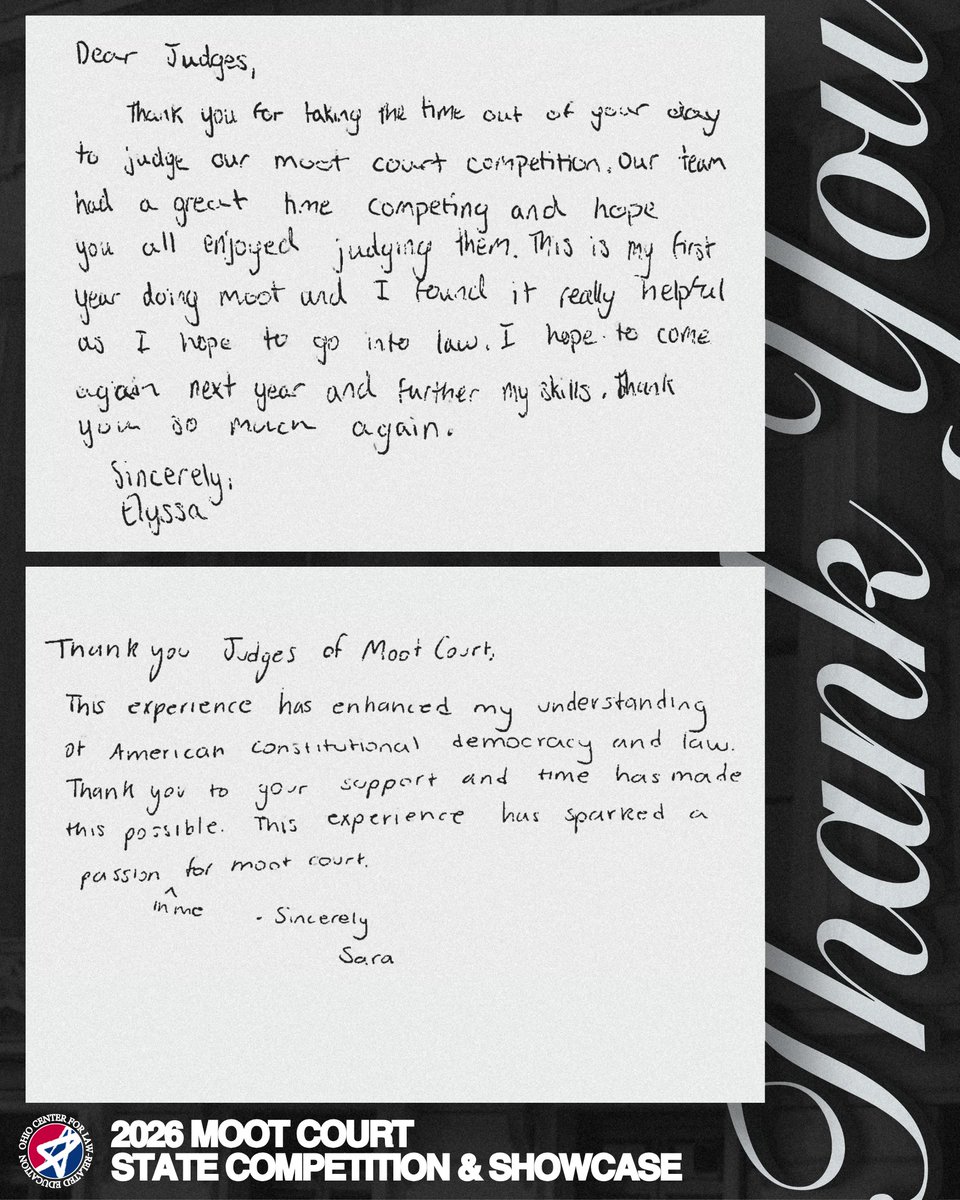 Dear Judges,
Thank you for taking the time out of your day
to judge our moot court competition. Our team
had a great time competing and hope
you all enjoyed judging them. This is my first
year doing moot and I found it really helpful
as I hope to go into law. I hope to come
again next year and further my skills. Thank
you so much again.
Sincerely,
Elyssa
Thank you Judges of Moot Court,
This experience has enhanced my understanding
of American constitutional democracy and law.
Thank you to your support and time has made
this possible. This experience has sparked a
passion ^ for moot court.
in me
- Sincerely
Sara
Thank You
OHIO CENTER FOR LAW-RELATED EDUCATION
2026 MOOT COURT
STATE COMPETITION & SHOWCASE